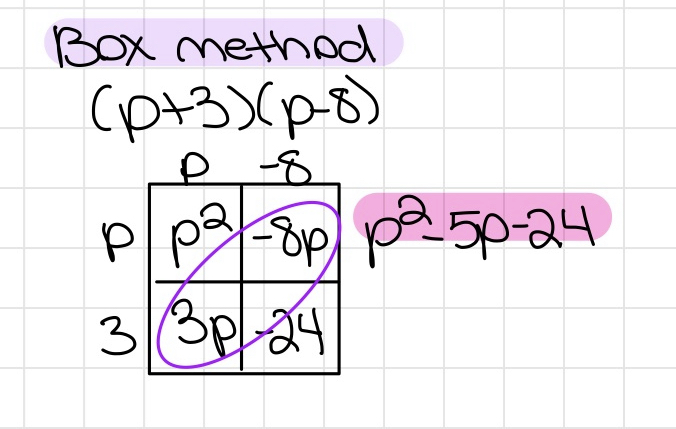 Box method
(p+3)(p-8)
p -8
p p² -8p p²-5p-24
3 3p -24